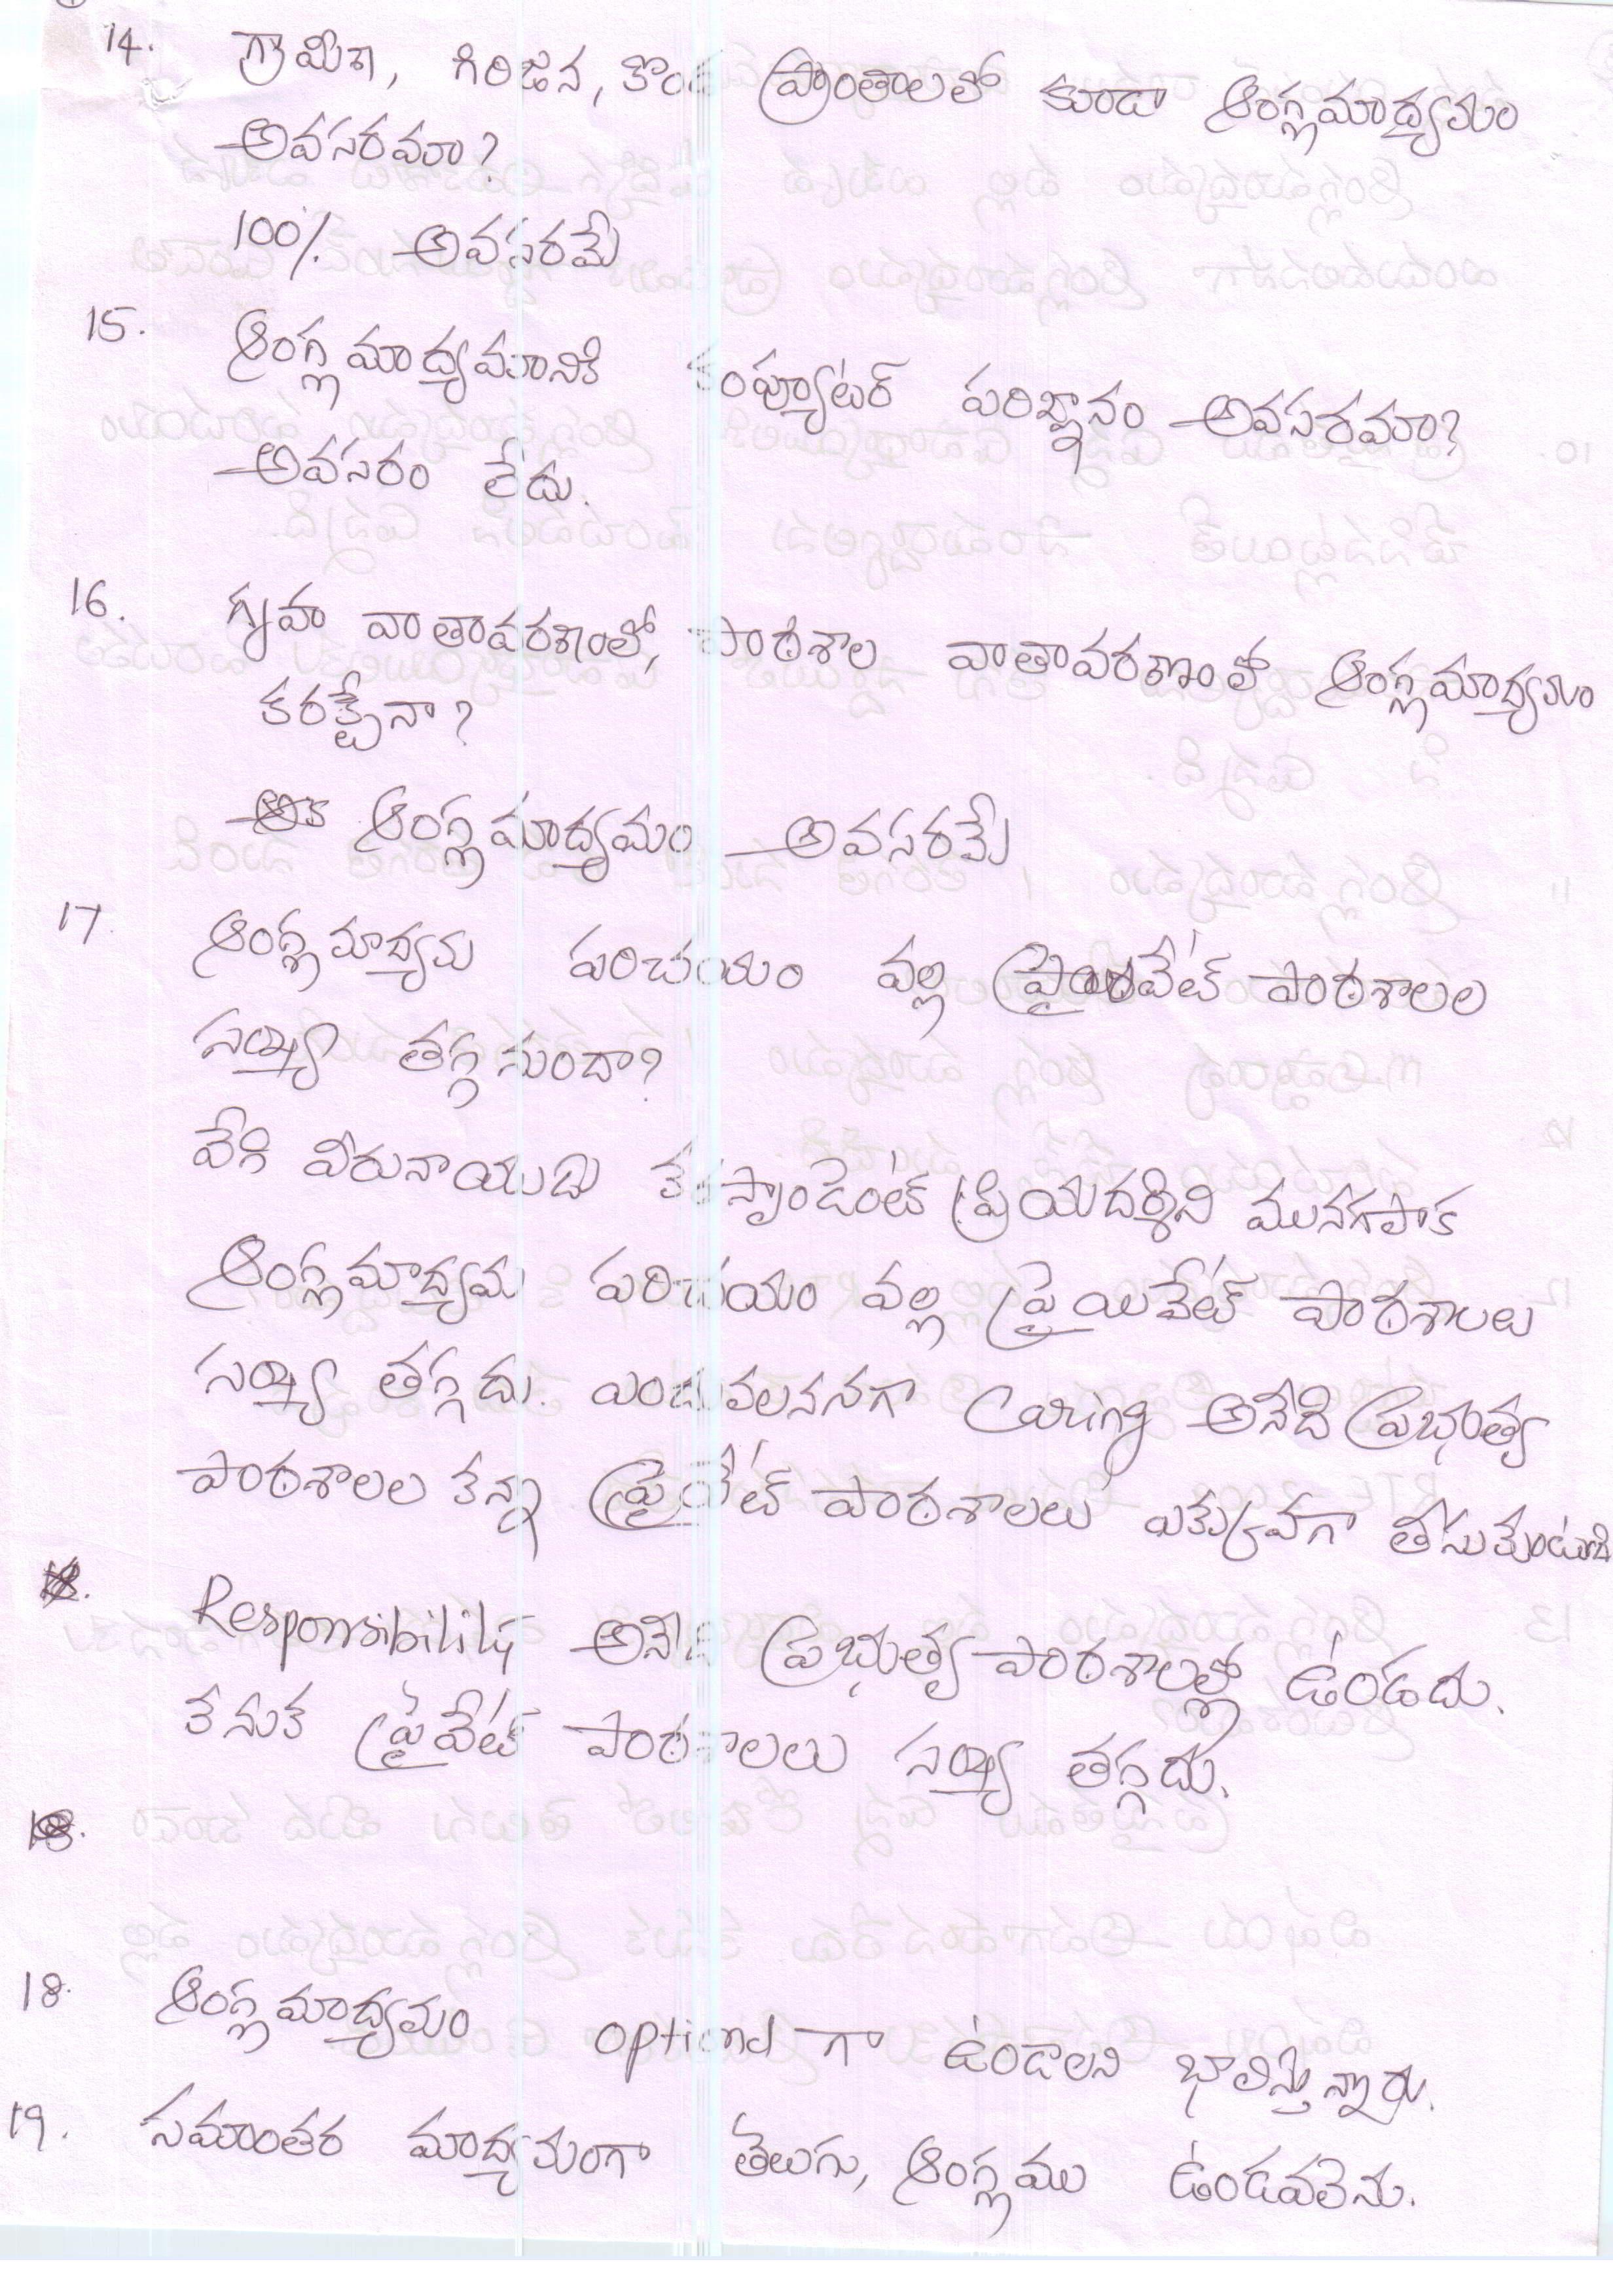 14. గ్రామీణ, గిరిజన, కొండ ప్రాంతాలలో కుడా ఆంగ్లమాద్యమం
అవసరమా?
100% అవసరమే
15. ఆంగ్లమాద్యమానికి కంప్యూటర్ పరిజ్ఞానం అవసరమా?
అవసరం లేదు.
16. గృహ వాతావరణంలో, పాఠశాల వాతావరణంలో ఆంగ్లమాద్యమం
కరక్టేనా?
ఆంగ్లమాద్యమం అవసరమే
17. ఆంగ్లమాద్యమ పరిచయం వల్ల ప్రైయివేట్ పాఠశాలల
సంఖ్యా తగ్గనుందా?
వేగి వీరునాయుడు కరస్పాండెంట్ ప్రియదర్శిని మునగపాక
ఆంగ్లమాద్యమ పరిచయం వల్ల ప్రైయివేట్ పాఠశాలలు
సంఖ్య తగ్గదు. ఎందువలననగా Caring అనేది ప్రభుత్వ
పాఠశాలల కన్నా ప్రైవేట్ పాఠశాలలు ఎక్కువగా తీసుకుంటుంది
Responsibility అనేది ప్రభుత్వ పాఠశాలల్లో ఉండదు.
కనుక ప్రైవేట్ పాఠశాలలు సంఖ్య తగ్గదు.
18. ఆంగ్లమాద్యమం optional గా ఉండాలని భావిస్తున్నారు.
19. సమాంతర మాద్యమంగా తెలుగు, ఆంగ్లము ఉండవలెను.